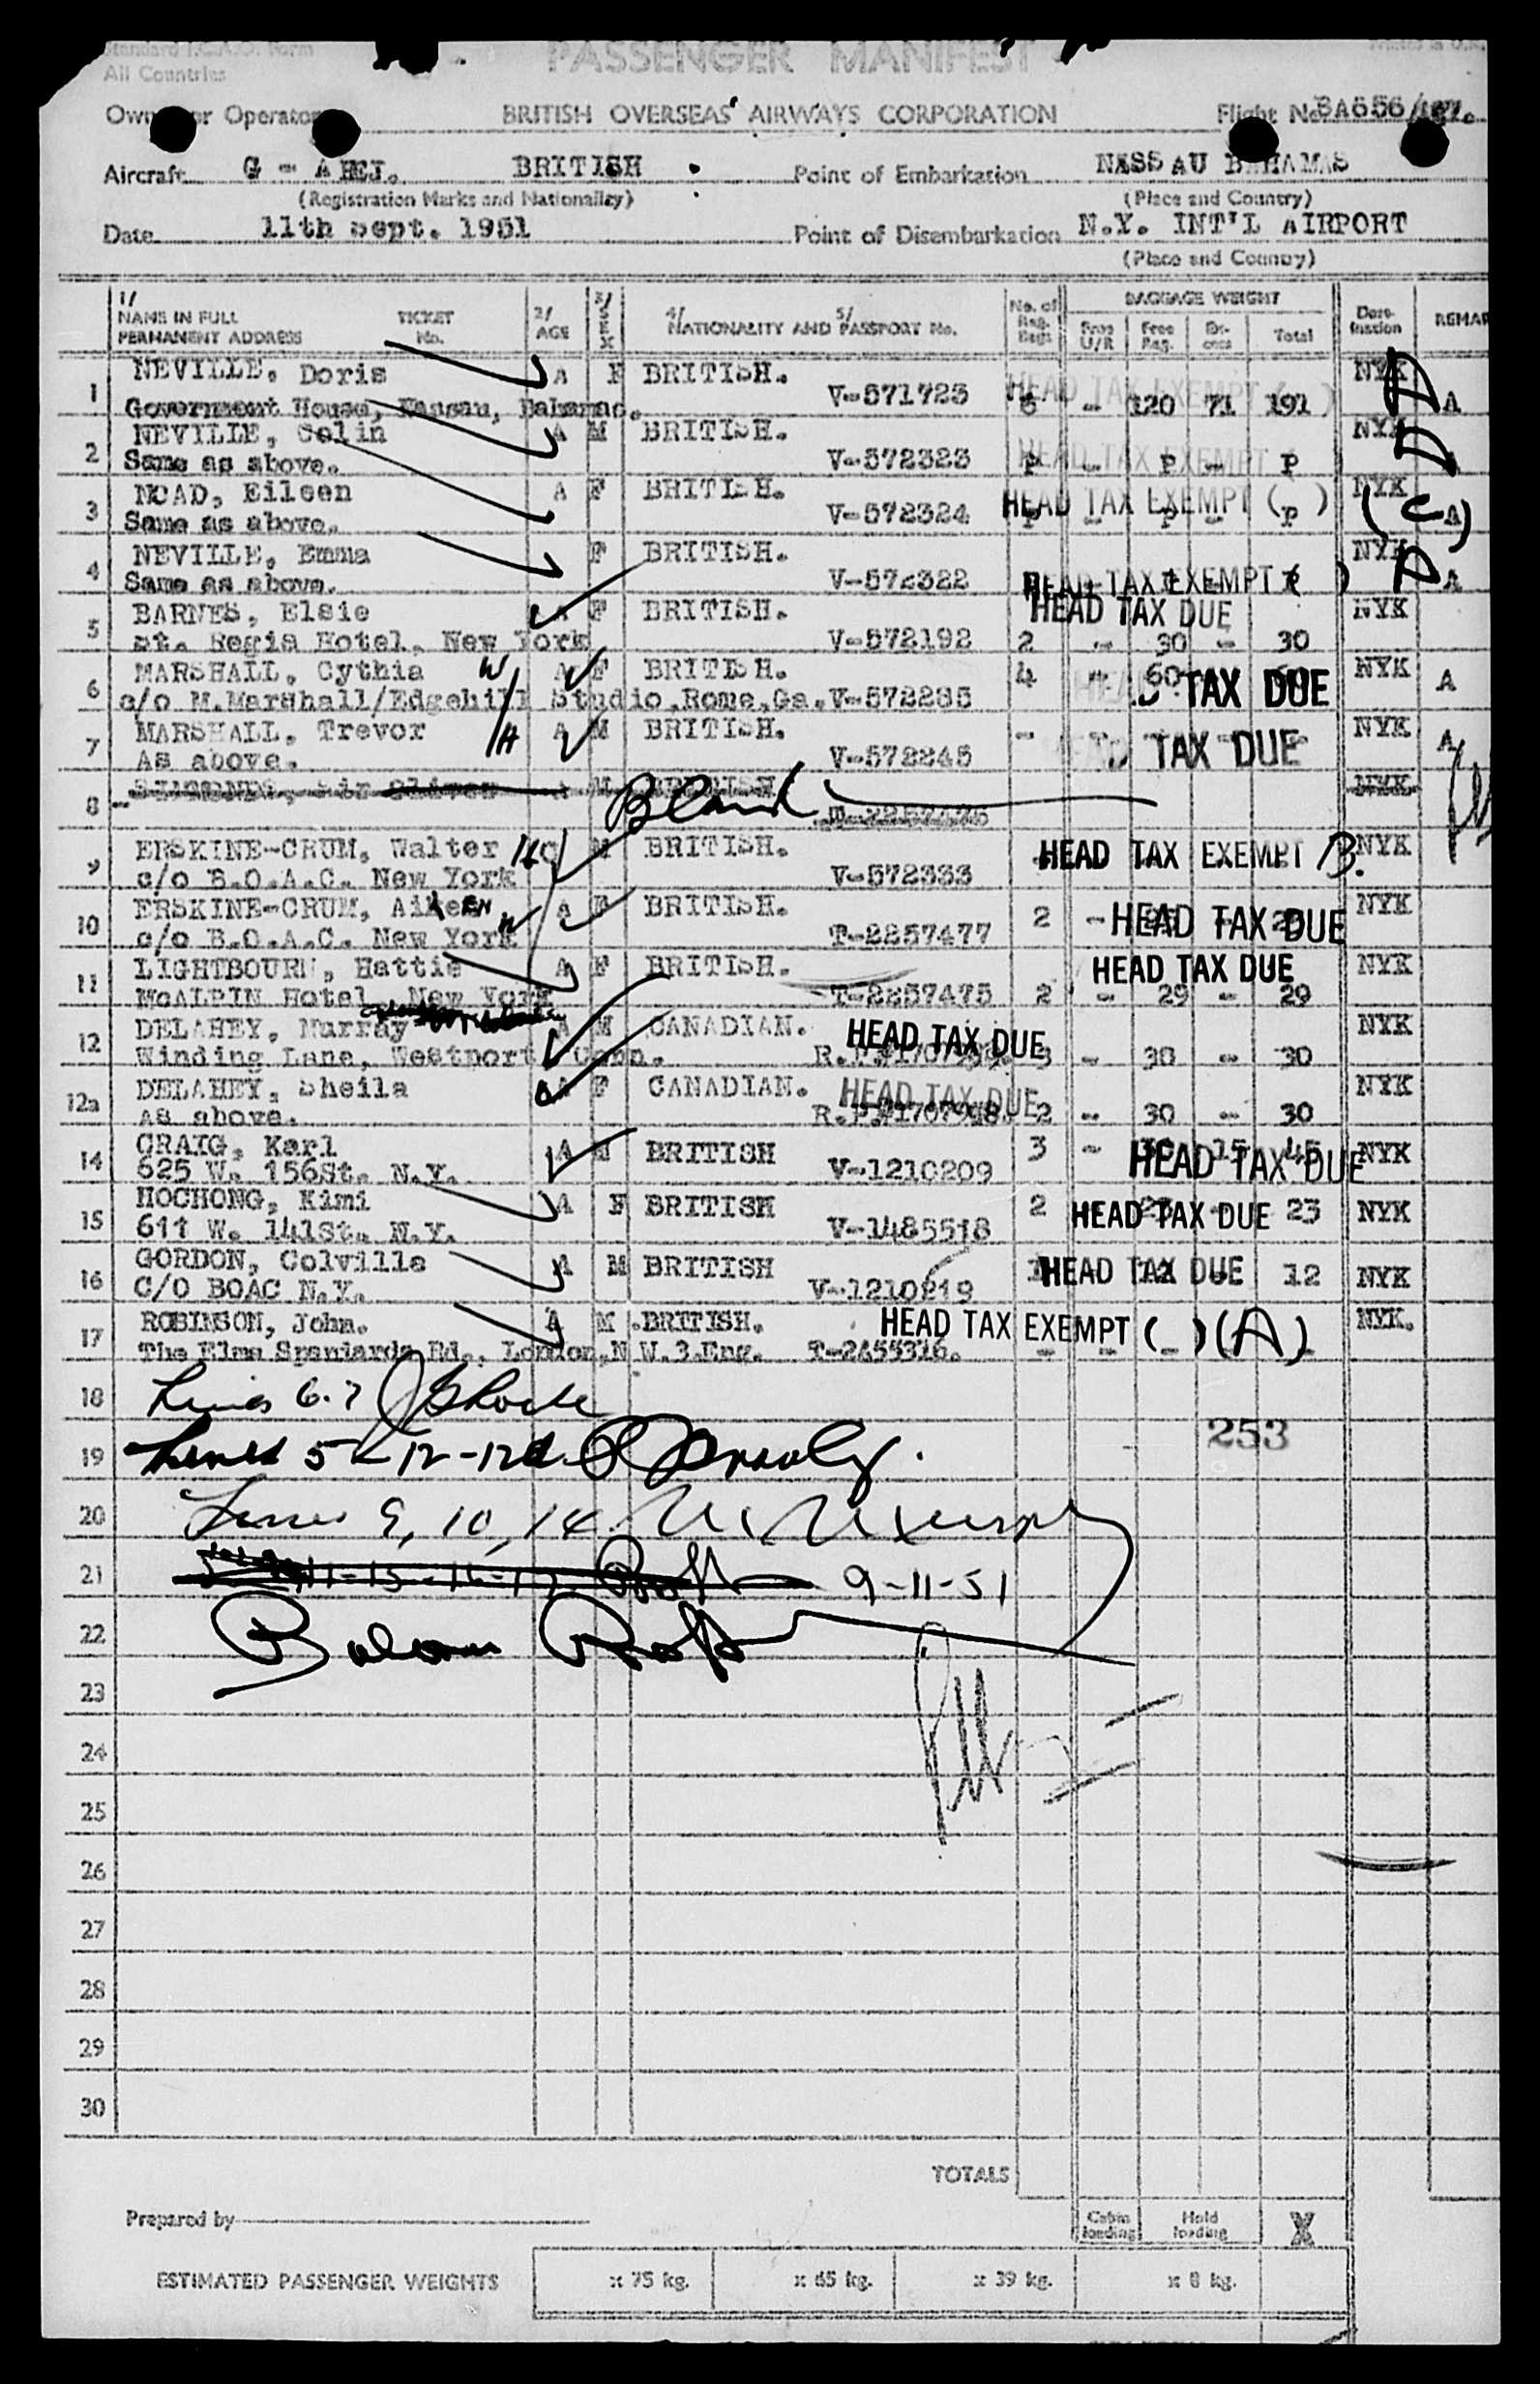 Standard I.C.A.O. Form
All Countries
PASSENGER MANIFEST
Owner or Operator BRITISH OVERSEAS AIRWAYS CORPORATION Flight No. BA656/
Aircraft G - AHEJ. BRITISH Point of Embarkation NASSAU BAHAMAS
(Registration Marks and Nationality) (Place and Country)
Date 11th Sept. 1951 Point of Disembarkation N.Y. INT'L AIRPORT
(Place and Country)
1/ NAME IN FULL PERMANENT ADDRESS TICKET No. 2/ AGE 3/ SEX 4/ NATIONALITY AND 5/ PASSPORT No. No. of Reg. Bags BAGGAGE WEIGHT Free U/R Free Reg. Ex-cess Total Dest-ination REMAR
1 NEVILLE, Doris A F BRITISH. NYK A
Government House, Nassau, Bahamas. V-571723 HEAD TAX EXEMPT ( ) 6 - 120 71 191 A
2 NEVILLE, Colin A M BRITISH. NYK
Same as above. V-572323 HEAD TAX EXEMPT P - P - P
3 NOAD, Eileen A F BRITISH. NYK
Same as above. V-572324 HEAD TAX EXEMPT ( ) P - P - P (C) A
4 NEVILLE, Emma F BRITISH. NYK
Same as above. V-572322 HEAD TAX EXEMPT ( ) A A
5 BARNES, Elsie A F BRITISH. HEAD TAX DUE NYK
St. Regis Hotel, New York V-572192 2 - 30 - 30
6 MARSHALL, Cythia W A F BRITISH. 4 - 60 HEAD TAX DUE NYK A
c/o M.Marshall/Edgehill Studio, Rome, Ga. V-572285
7 MARSHALL, Trevor H A M BRITISH. - TAX DUE NYK A
As above. V-572245
8 A M BRITISH Bland NYK
T-2257476
9 ERSKINE-CRUM, Walter M BRITISH. HEAD TAX EXEMPT B. NYK
c/o B.O.A.C. New York V-572333
10 ERSKINE-CRUM, EN W A F BRITISH. 2 - HEAD TAX DUE NYK
c/o B.O.A.C. New York T-2257477
11 LIGHTBOURN, Hattie A F BRITISH. HEAD TAX DUE NYK
McALPIN Hotel, New York T-2257475 2 - 29 - 29
12 DELAHEY, Murray A M CANADIAN. HEAD TAX DUE NYK
Winding Lane, Westport Conn. R.P.# 3 - 30 - 30
12a DELAHEY, Sheila A F CANADIAN. HEAD TAX DUE NYK
As above. R.P.#1707998. 2 - 30 - 30
14 CRAIG, Karl A M BRITISH 3 - 30 15 45 HEAD TAX DUE NYK
625 W. 156St. N.Y. V-1210209
15 HOCHONG, Kimi A F BRITISH 2 HEAD TAX DUE 23 NYK
611 W. 141St. N.Y. V-1485518
16 GORDON, Colville A M BRITISH HEAD TAX DUE 12 NYK
C/O BOAC N.Y. V-1210219
17 ROBINSON, John. A M BRITISH. HEAD TAX EXEMPT ( ) (A) NYK.
The Elms Spaniards Rd., London, N.W.3.Eng. T-2455316. - - - -
18 Lines 6.7
19 Lines 5 12-12a 253
20 Lines 9, 10, 14
21 11-15-16-17 9-11-51
22 Balance
23
24
25
26
27
28
29
30
TOTALS
Prepared by Cabin loading Hold loading X
ESTIMATED PASSENGER WEIGHTS x 75 kg. x 65 kg. x 39 kg. x 8 kg.